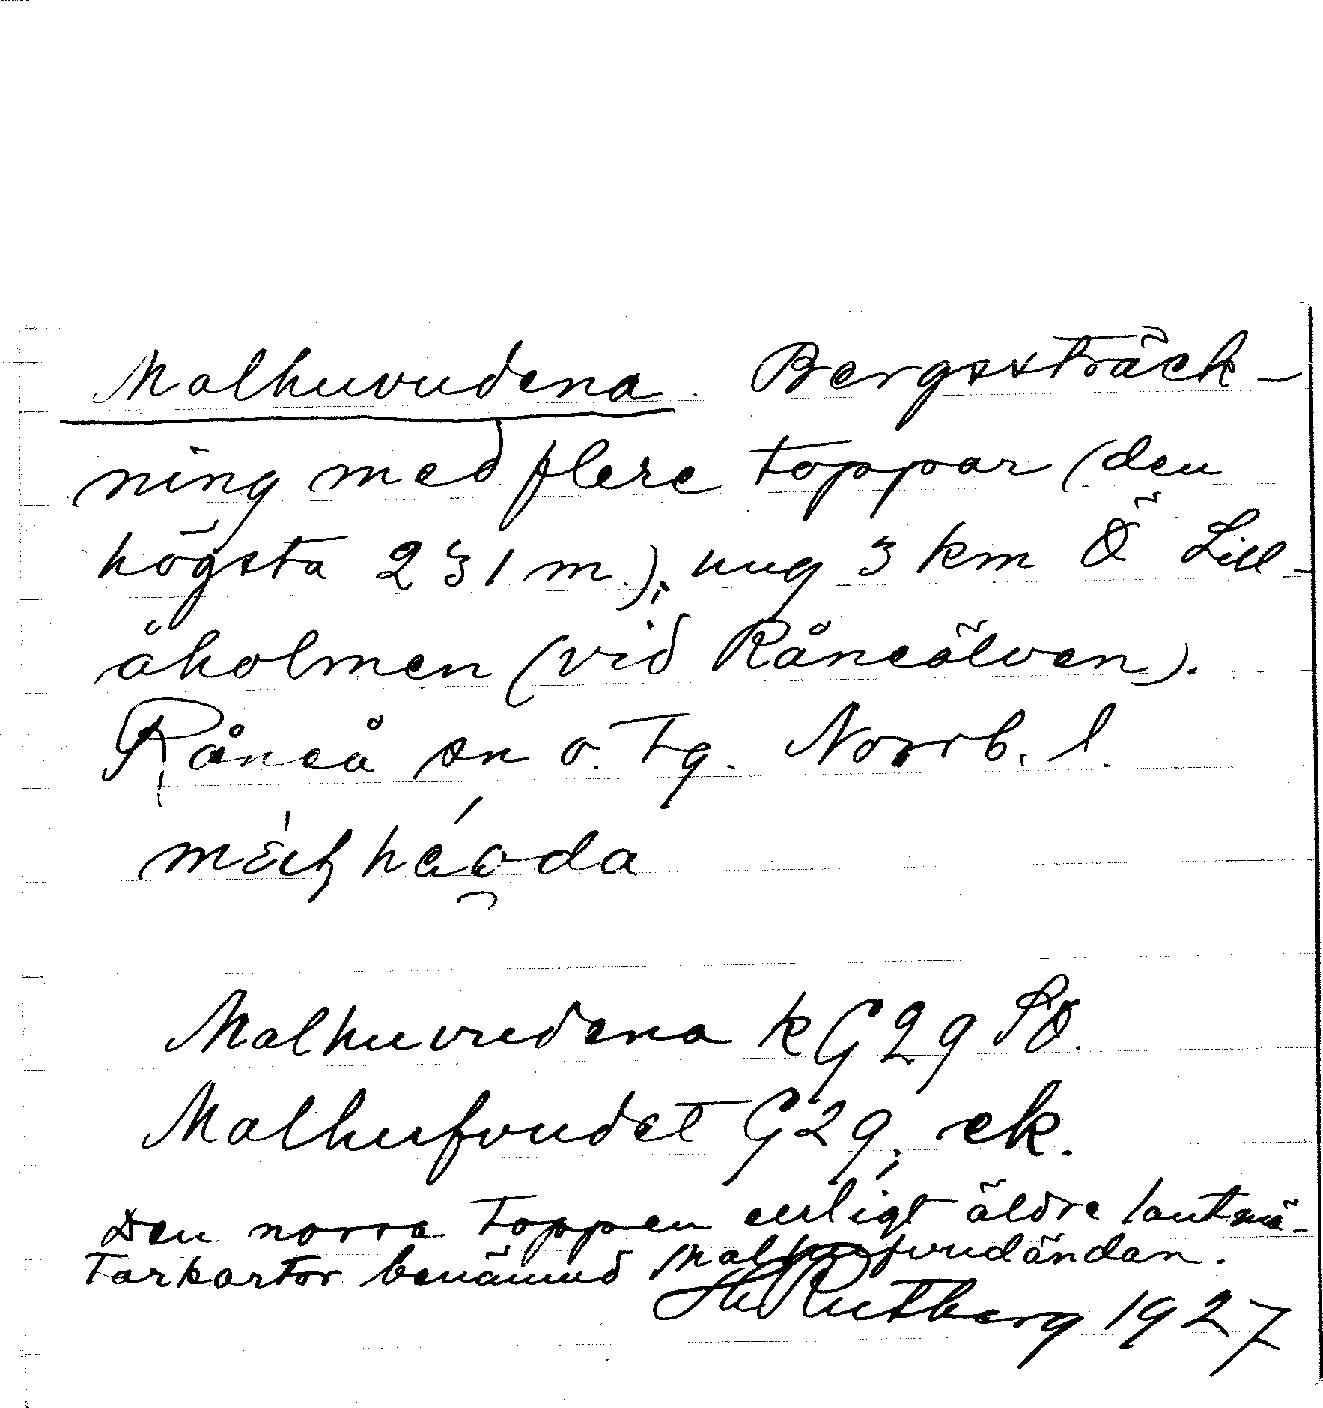 Malhuvudena. Bergssträck-
ning med flere toppar (den
högsta 231 m.), ung 3 km Ö Lill-
åholmen (vid Råneälven).
Råneå sn o. Tg. Norrb. l.
Malhuvudena k G29 SO.
Malhufvudet G29, ek.
Den norra toppen enligt äldre lantmä-
tarkartor benämnd Malhufvudändan.
H Rutberg 1927